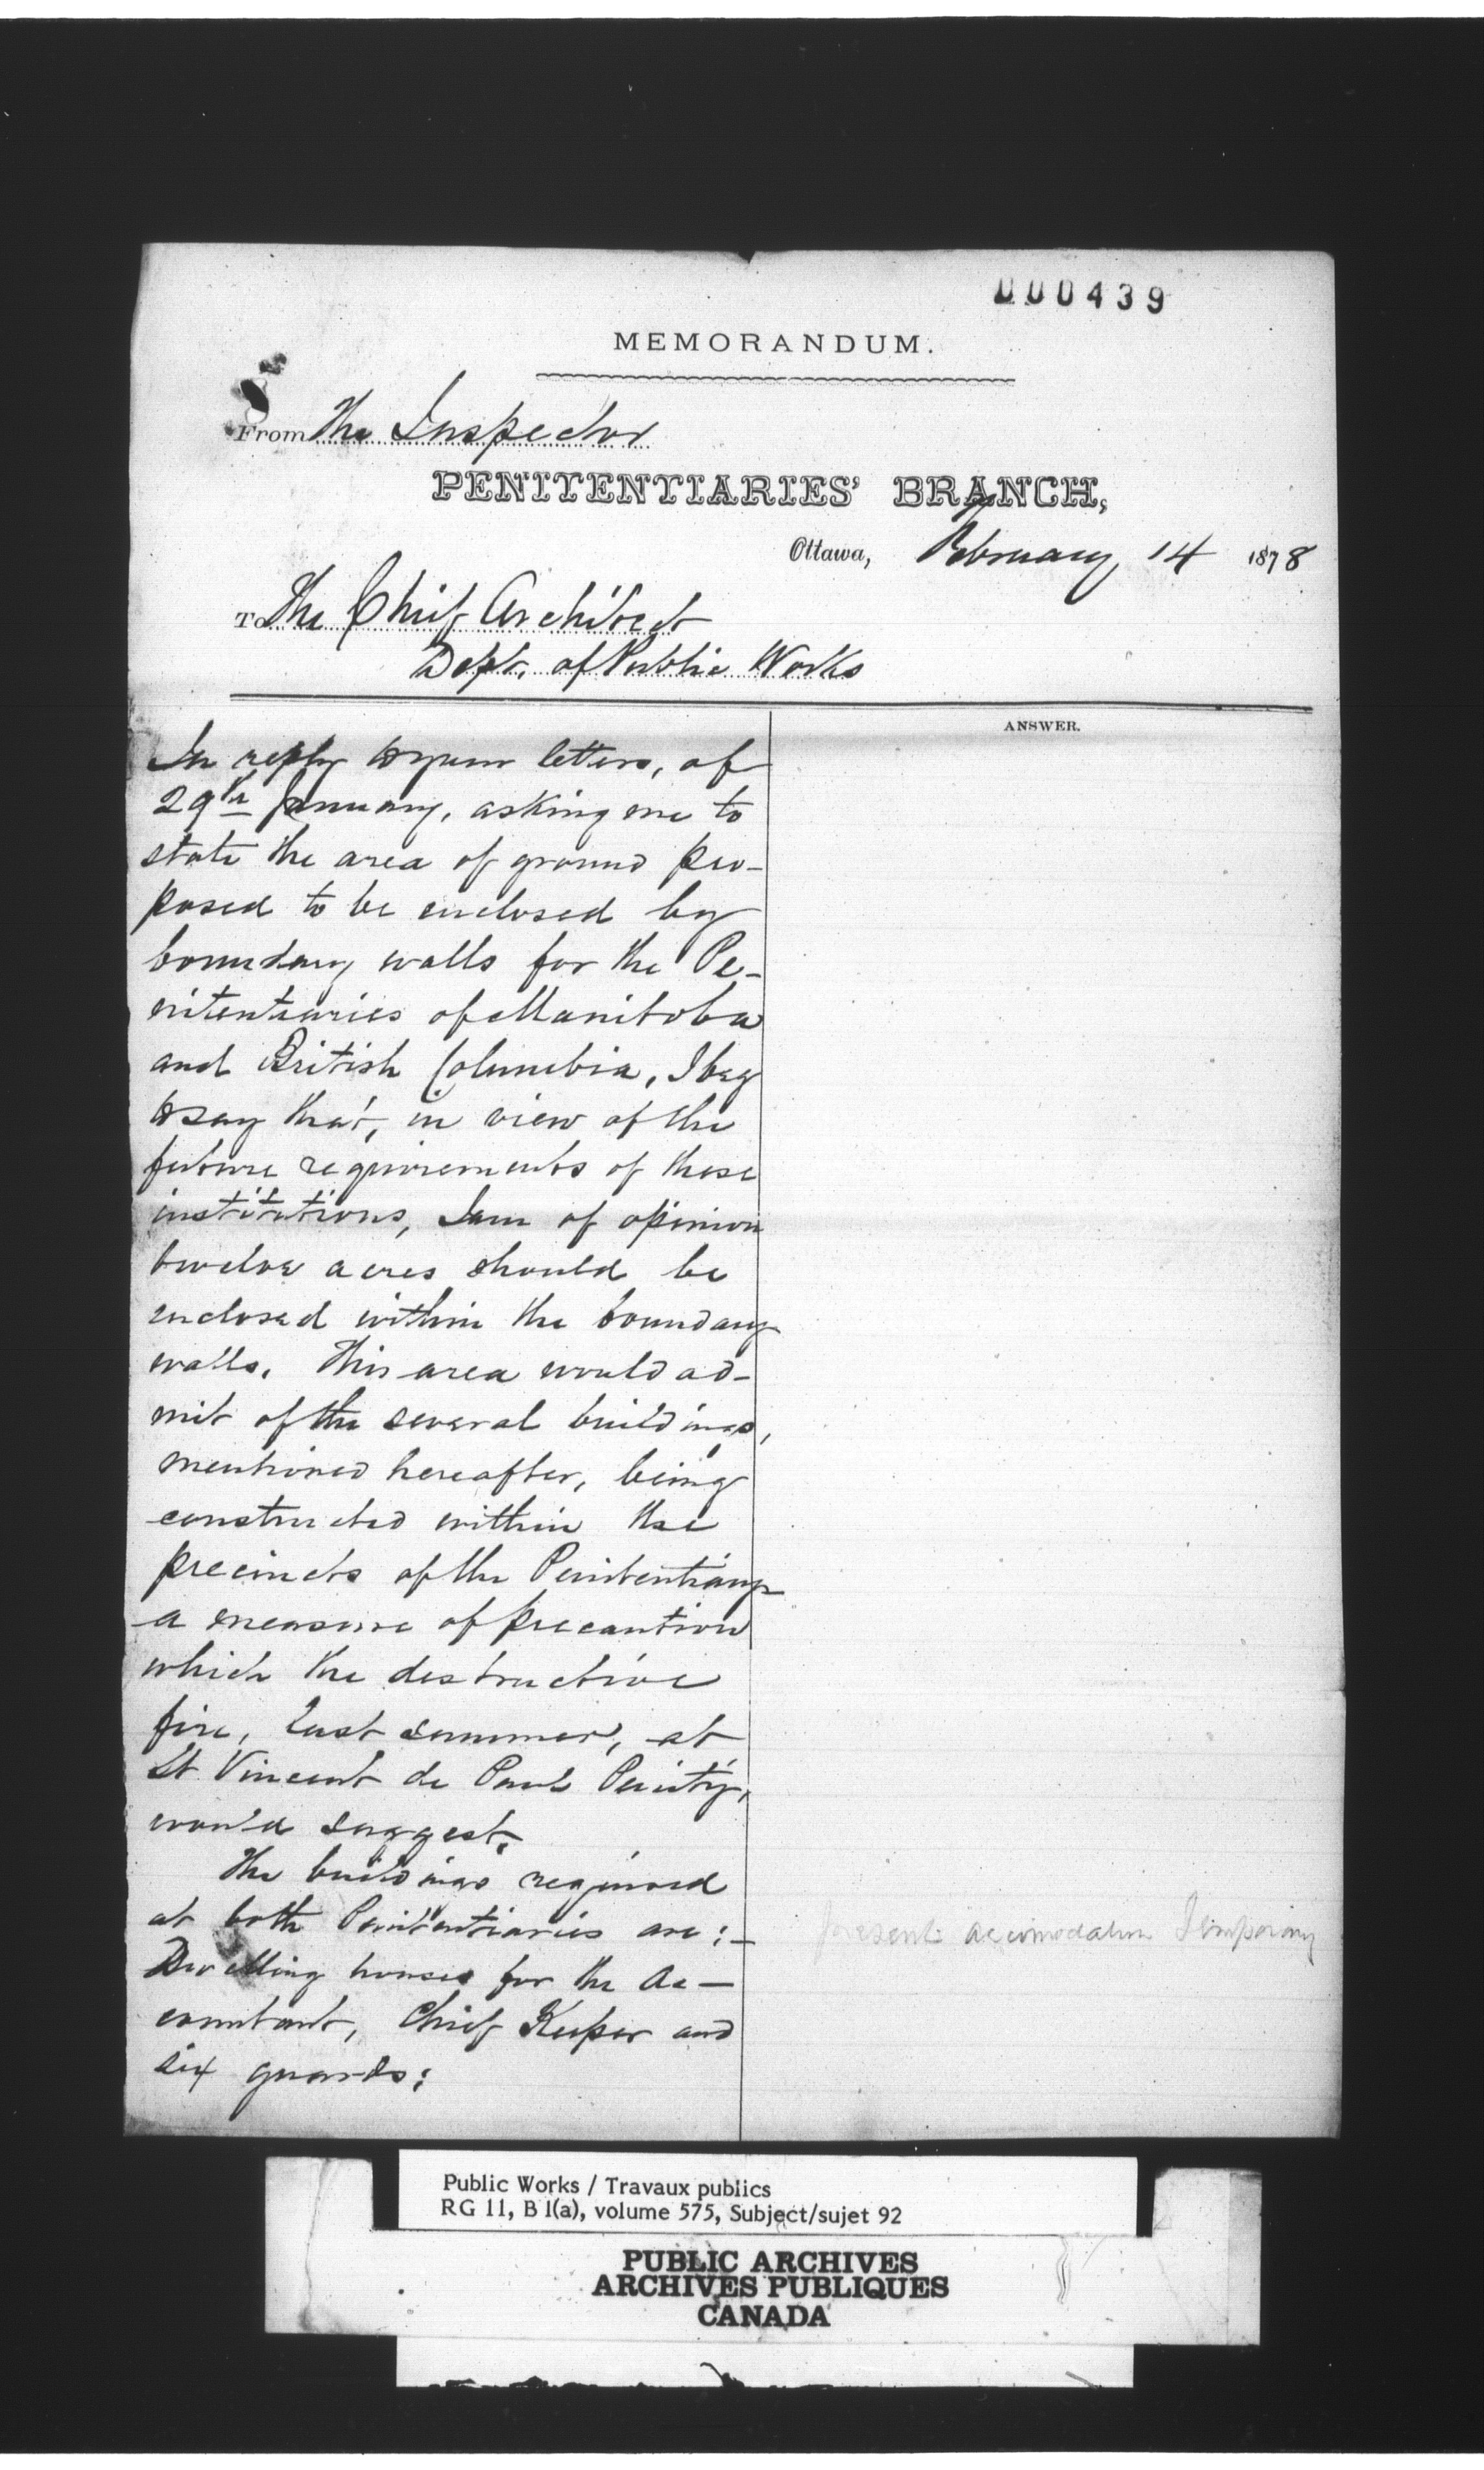 000439
MEMORANDUM.
From The Inspector
PENITENTIARIES' BRANCH,
Ottawa, February 14 1878
To The Chief Architect
Dept. of Public Works
ANSWER.
In reply to your letters, of
29th January, asking me to
state the area of ground pro-
posed to be enclosed by
boundary walls for the Pe-
nitentiaries of Manitoba
and British Columbia, I beg
to say that, in view of the
future requirements of these
institutions, I am of opinion
twelve acres should be
enclosed within the boundary
walls. This area would ad-
mit of the several buildings,
mentioned hereafter, being
constructed within the
precincts of the Penitentiary
a measure of precaution
which the destructive
fire, last summer, at
St Vincent de Paul Penity,
would suggest.
The buildings required
at both Penitentiaries are:—
Dwelling houses for the Ac-
countant, Chief Keeper and
six guards;
present accomodation Temporary
Public Works / Travaux publics
RG 11, B 1(a), volume 575, Subject/sujet 92
PUBLIC ARCHIVES
ARCHIVES PUBLIQUES
CANADA